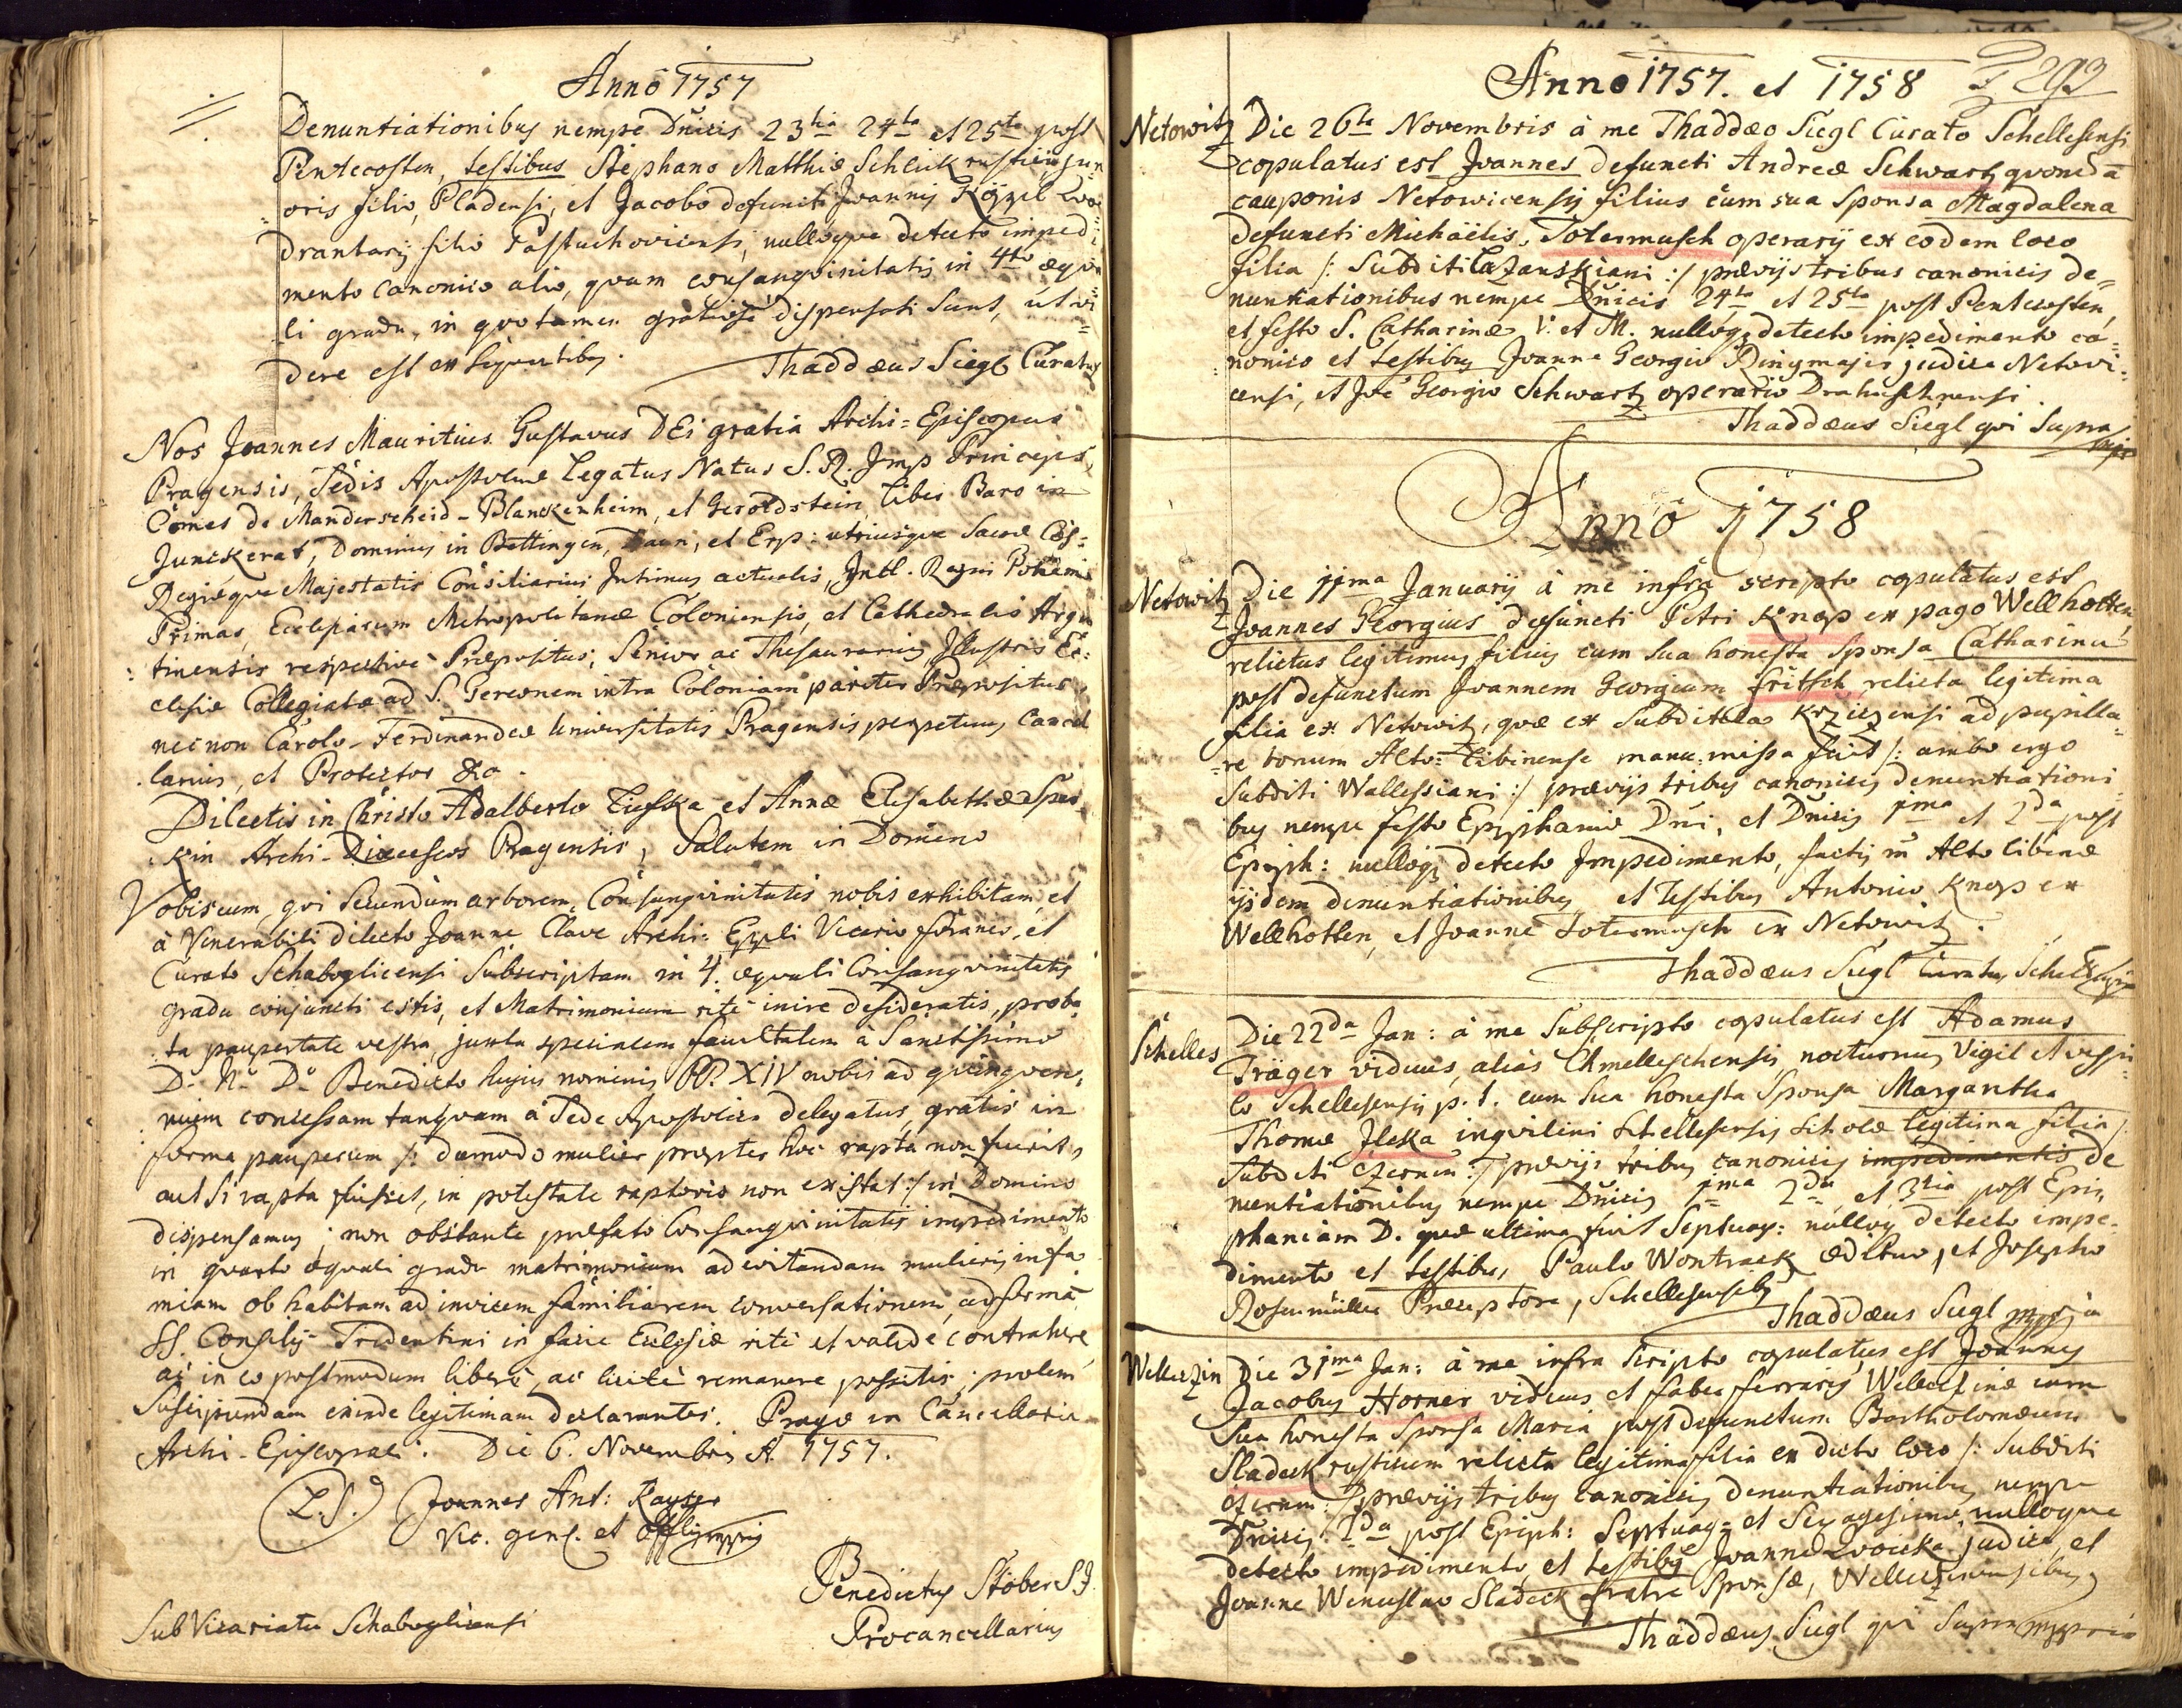 Anno 1757
Denuntiationibus nempe Dnicis 23tia 24ta et 25ta post
Pentecosten, testibus Stephano Matthiæ Schlik rustici jun
oris filio, Pladensi, et Jacobo defuncti Joannis Közzl qva=
drantarij filio Pastuchovicensi, nulloqve detecto impedi=
mento canonico alio, qvam consangvinitatis in 4to æqva=
li gradu, in qvo tamen gratiosè dispensati sunt, ut vi=
dere est ex seqventibus.
Thaddæus Siegl Curatus
Nos Joannes Mauritius Gustavus DEi gratia Archi=Episcopus
Pragensis, Sedis Apostolicæ Legatus Natus S. R. Imp Princeps,
Comes de Manderscheid-Blanckenheim, et Geroldstein, Liber Baro in
Junckerat, Dominus in Bettingen, Daun, et Erp: utriusqve Sacræ Cæs=
Regiæqve Majestatis Consiliarius Intimus actualis, Incl. Regni Bohemiæ
Primas, Ecclesiarum Metropolitanæ Coloniensis, et Cathedralis Argen
tinensis respective Præpositus, Senior ac Thesaurarius, Illustris Ec=
clesiæ Collegiatæ ad S. Gereonem intra Coloniam pariter Præpositus,
nec non Carolo-Ferdinandeæ Universitatis Pragensis perpetuus Cancel
larius, et Protector &c.
Dilectis in Christo Adalberto et Annæ Elisabethæ
kin Archi-Dioeceseos Pragensis, Salutem in Domino
Vobiscum, qvi secundum arborem Consangvinitatis nobis exhibitam, et
à Venerabili dilecto Joanne Clave Archi: Eppli Vicario foraneo, et
Curato Schaboglicensi subscriptam in 4. æqvali Consangvinitatis
gradu conjuncti estis, et Matrimonium ritè inire desideratis, proba
ta paupertate vestra, juxta specialem facultatem à Sanctissimo
D. N. D. Benedicto hujus nominis PP. XIV nobis ad qvinqven=
nium concessam tanqvam à Sede Apostolica delegatus, gratis in
forma pauperum /: dummodo mulier propter hoc rapta non fuerit,
aut si rapta fuisset, in potestate raptoris non existat :/ in Domino
dispensamus; non obstante præfato Consangvinitatis impedimento
in qvarto æqvali gradu matrimonium ad evitandam mulieris infa
miam ob habitam ad invicem familiarem conversationem, ad formã
SS. Consilij Tridentini in facie Ecclesiæ ritè et validè contrahere,
ac in eo postmodum liberè, ac licitè remanere possitis; prolem
suscipiendam exinde legitimam declarantes. Pragæ in Cancellaria
Archi-Episcopali. Die 6. Novembris A. 1757.
(L.S.) Joannes Ant: Kayser
Vic. genl. et Offlis mppria
Benedictus Stöber S.J.
Procancellarius
Sub Vicariatu Schaboglicensi
Anno 1757. et 1758
293
Netowitz Die 26ta Novembris à me Thaddæo Siegl Curato Schellesensi
copulatus est Joannes defuncti Andreæ Schwartz qvondã
cauponis Netowicensis filius cum sua Sponsa Magdalena
defuncti Michaëlis Totermusch operarij ex eodem loco
filia /: Subditi Lazanskiani :/ prævijs tribus canonicis de=
nuntiationibus nempe Dnicis 24ta et 25ta post Pentecosten,
et festo S. Catharinæ V. et M. nulloq detecto impedimento ca=
nonico et testibus Joanne Georgio Dingmajer judice Netowi=
censi, et Joe Georgio Schwartz operario Drahuschnensi.
Thaddæus Siegl qvi Supra mpp
Anno 1758
Netowitz Die 11ma Januarij à me infra scripto copulatus est
Joannes Georgius defuncti Petri Knop ex pago Wellhotten,
relictus legitimus filius cum sua honesta Sponsa Catharina
post defunctum Joannem Georgium fritsch relicta legitima
filia ex Netowitz, qvæ ex Subditela Krziczensi ad pupilla=
re bonum Alto=Libinense manu missa fuit /: ambo ergo
Subditi Wallessiani :/ prævijs tribus canonicis denuntiationi=
bus nempe festo Epiphaniæ Dni, et Dnicis 1ma et 2da post
Epiph: nulloq detecto Impedimento, factis in Alto libinæ
ijsdem denuntiationibus et Testibus Antonio Knop ex
Wellhotten, et Joanne Totermusch ex Netowitz.
Thaddæus Siegl Curatus Schell mppria
Schelles Die 22da Jan: à me Subscripto copulatus est Adamus
Träger viduus, aliàs Chmelleschensis nocturnus Vigil et vespil=
lo Schellesensis p. t. cum sua honesta Sponsa Margaritha
Thomæ Jleka inqvilini Schellesensis Scholæ legitima filia /:
Subditi Czernin :/ prævijs tribus canonicis impedimentis de
nuntiationibus nempe Dnicis 1ma 2da et 3tia post Epi=
phaniam D. qvæ ultima fuit Septuag: nulloq detecto impe=
dimento et testibus, Paulo Wontrack ædituo, et Josepho
Rosenmüller Præceptore, Schellesensibus
Thaddæus Siegl mppria
Welleczin Die 31ma Jan: à me infra scripto copulatus est Joannes
Jacobus Horner viduus et faber ferrarius Welleczinæ cum
sua honesta Sponsa Maria post defunctum Bartholomæum
Sladeck rusticum relicta legitima filia ex dicto loco /: Subditi
Czernin :/ prævijs tribus canonicis denuntiationibus nempe
Dnicis 2da post Epiph: Septuag= et Sexagesimæ nulloqve
detecto impedimento, et testibus Joanne judice, et
Joanne Wenceslao Sladeck fratre Sponsæ, Welleczinensibus
Thaddæus Siegl qvi Supra mppria